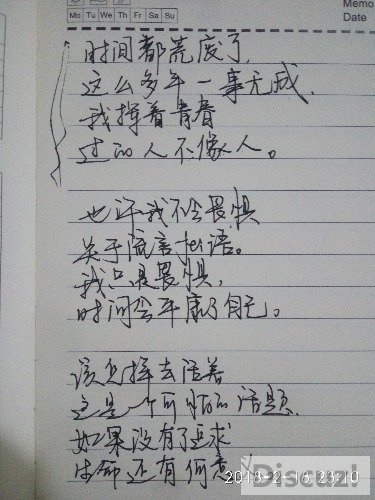 Memo
Mo Tu We Th Fr Sa Su
Date
时间都荒废了,
这么多年一事无成,
我挥着青春
过的人不像人。
也许我不会畏惧
关于流言
我只是畏惧,
时间会平庸了自己。
该怎样去活着
这是一个可怕的话题,
如果没有了追求
生命还有何意义
2018-2-16 23:10
Discuz!